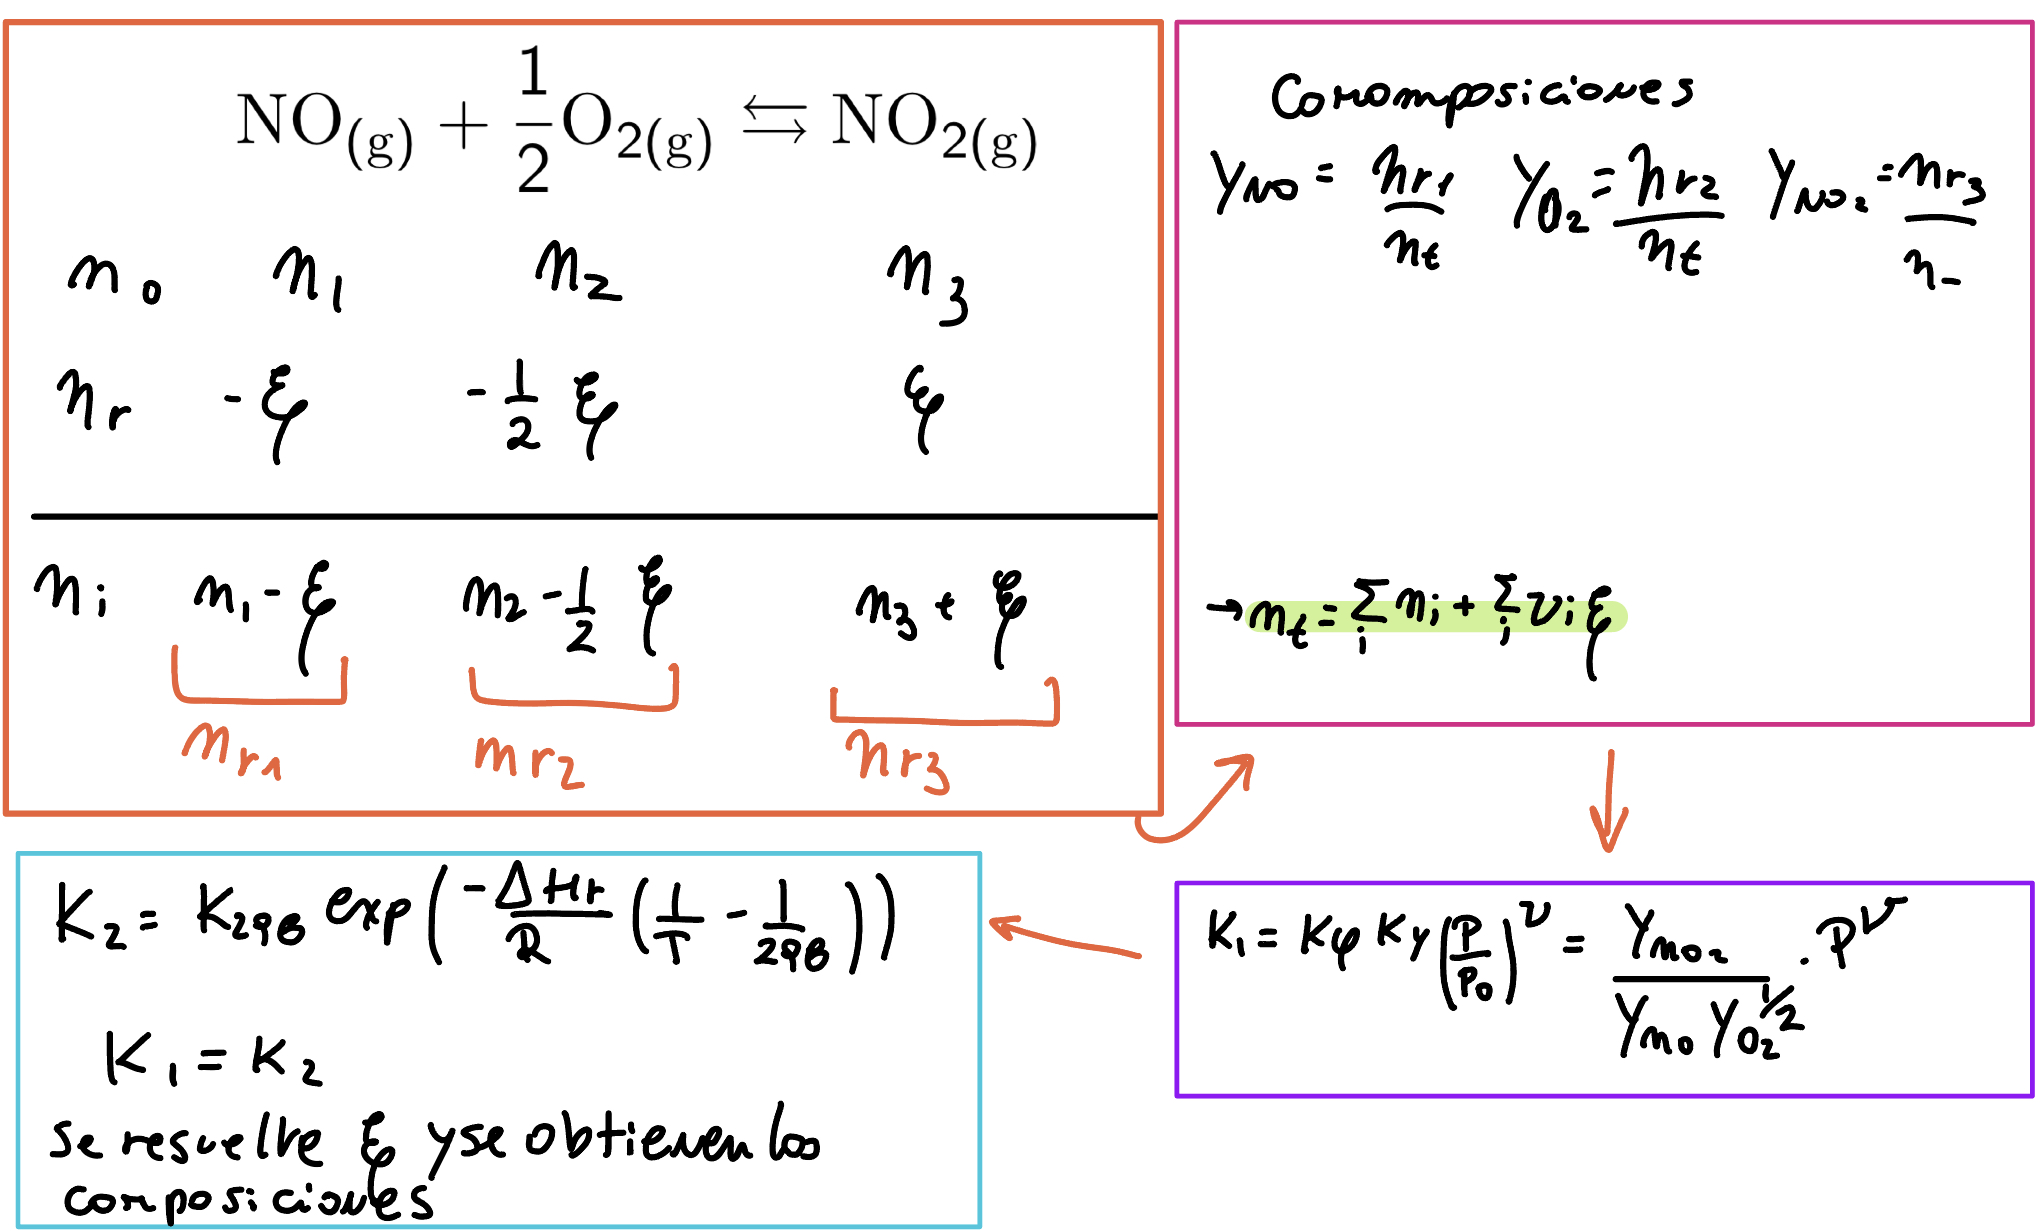 NO(g) + 1/2 O2(g) ⇆ NO2(g)
n0 n1 n2 n3
nr -ξ -1/2 ξ ξ
ni n1-ξ n2-1/2 ξ n3+ξ
nr1 nr2 nr3
Comomposiciones
YNO = nr1/nt YO2 = nr2/nt YNO2 = nr3/n-
→ nt = Σi ni + Σi νi ξ
K1 = Kφ Ky (P/P0)^ν = YNO2/(YNO YO2^1/2) . P^ν
K2 = K298 exp(-ΔHr/R (1/T - 1/298))
K1 = K2
Se resuelve ξ y se obtienen los
composiciones